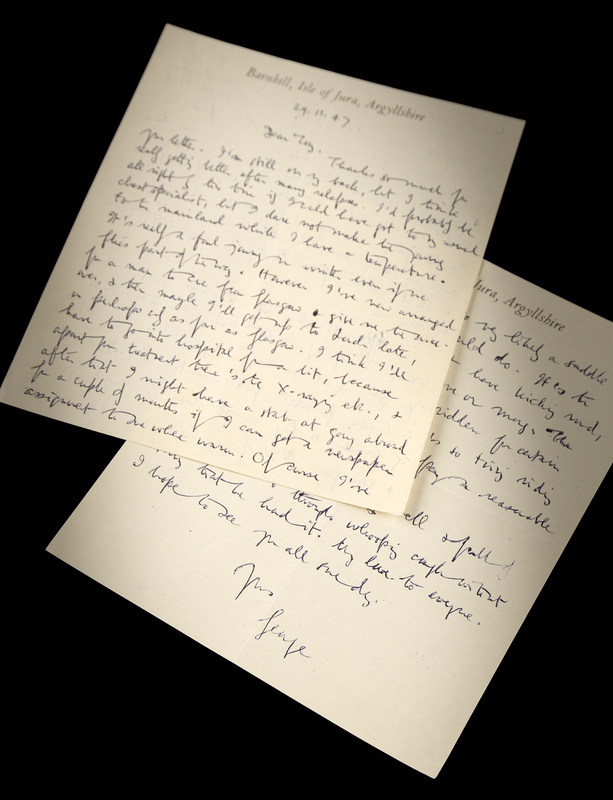 Barnhill, Isle of Jura, Argyllshire
29.11.47
Dear Tosco, Thanks so much for
your letter. I'm still on my back, but I think
really getting better after many relapses. I'd probably be
all right by this time if I could have got to my usual
chest specialist, but I dare not make the journey
to the mainland while I have a temperature.
It's really a foul journey in winter even if one
flies part of the way. However I've now arranged
for a man to come from Glasgow & give me the once-
over, & then maybe I'll get up to London late,
or perhaps only as far as Glasgow. I think I'll
have to go into hospital for a bit, because
apart from treatment there's the X-raying etc., &
after that I might have a stab at going abroad
for a couple of months if I can get a newspaper
assignment to somewhere warm. Of course I've
Jura, Argyllshire
very likely a saddle
would do. It's the
have kicking round,
or mong. The
ridden for certain
so tiring riding
a reasonable
well & full of
through whooping cough without
that he had it. My love to everyone.
I hope to see you all one day.
Yours
George